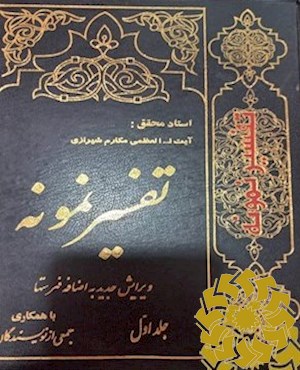 استاد محقق :
آیت ا... العظمی مکارم شیرازی
تفسیر نمونه
ویرایش جدید به اضافه فهرستها
جلد اول
با همکاری
جمعی از نویسندگان
تفسیر نمونه